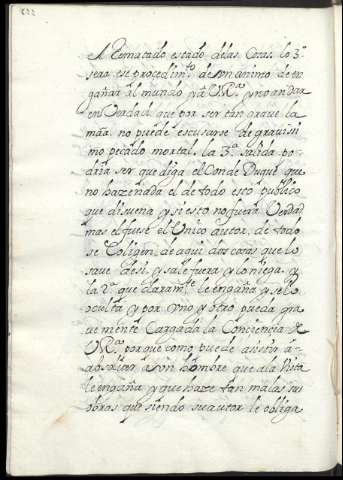 el Rematado estado de las Cosas. lo 3º
sera ese procedimto de un animo de en
gañar al mundo y a V. Mg. y no andar
en Verdad que por ser tan graue la
mãa no puede escusarse de grauissi
mo pecado mortal. la 3ª salida po
dria ser que diga el Conde Duque que
no haze nada el de todo esto publico
que disuena y si esto no fuera Verdad
mas el fuese el Unico autor, de todo
se Coligen de aqui dos cosas que lo
saue de si, y sale fuera y lo niega, y
la 2ª que claramte le engaña y se lo
oculta y por uno y otro pueda gra
uemente Cargada la Conciencia de
V. Mg. porque como puede asistir a
a un hombre que a la Vista
le engaña y que haze tan malas sus
obras que siendo su autor le obliga